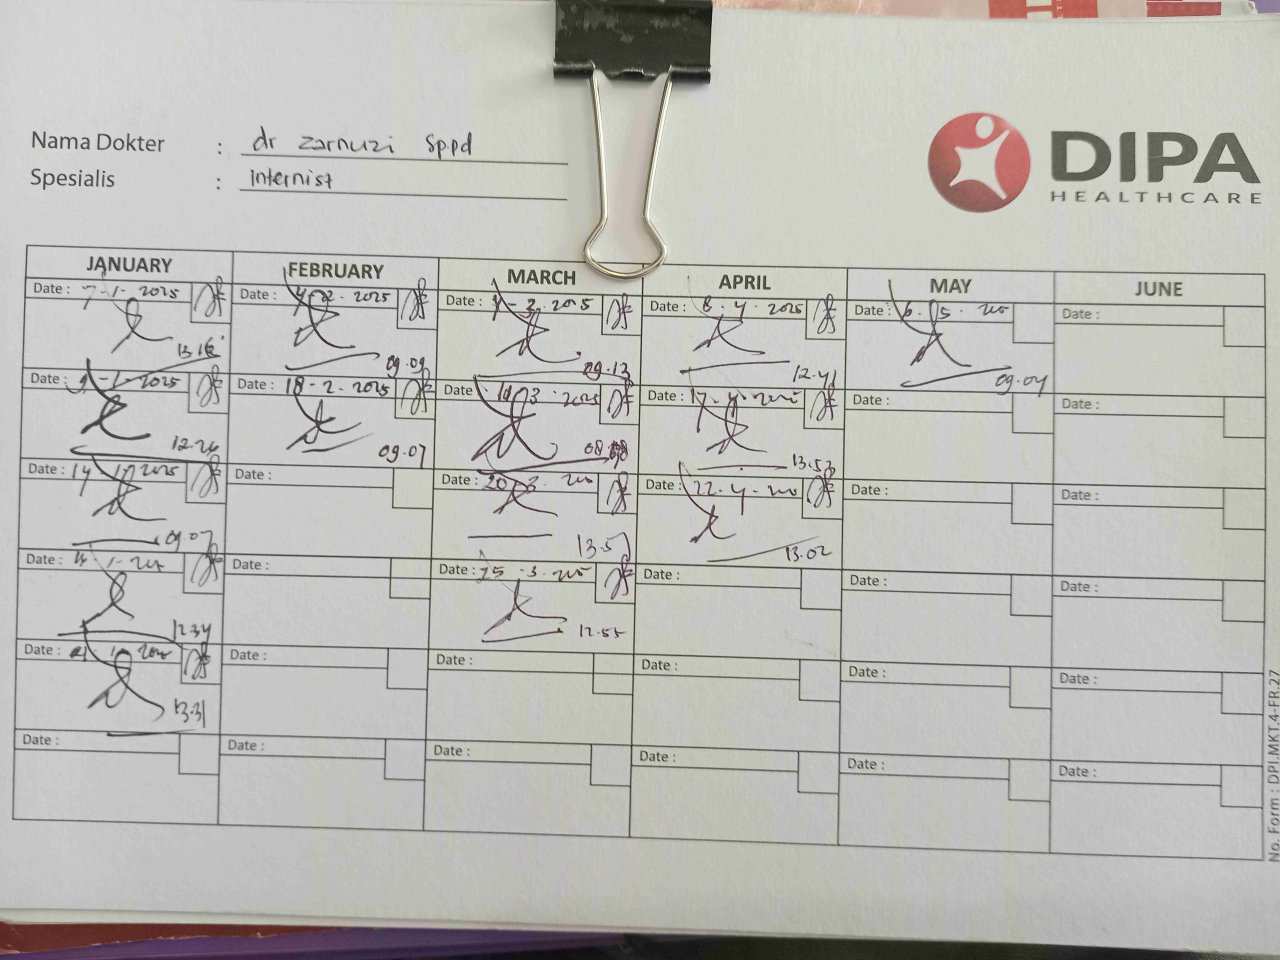 Nama Dokter : dr Zarnuzi Sppd
Spesialis : Internist
DIPA
HEALTHCARE
JANUARY FEBRUARY MARCH APRIL MAY JUNE
Date : 7-1-2025 Date : 2-2025 Date : 2025 Date : 8.4.2025 Date : 6.5. Date :
13.16 09.09 09.13 12.41 09.04
Date : -1-2025 Date : 18-2-2025 Date : 3.2025 Date : 17. Date : Date :
12.26 09.07 08. 13.53
Date : 14 2025 Date : Date : 20 3. Date : 22.4. Date : Date :
09.07 13.57 13.02
Date : Date : Date : 25-3. Date : Date : Date :
12.34 12.55
Date : Date : Date : Date : Date : Date :
13.31
Date : Date : Date : Date : Date : Date :
No. Form : DPI.MKT.4-FR.27